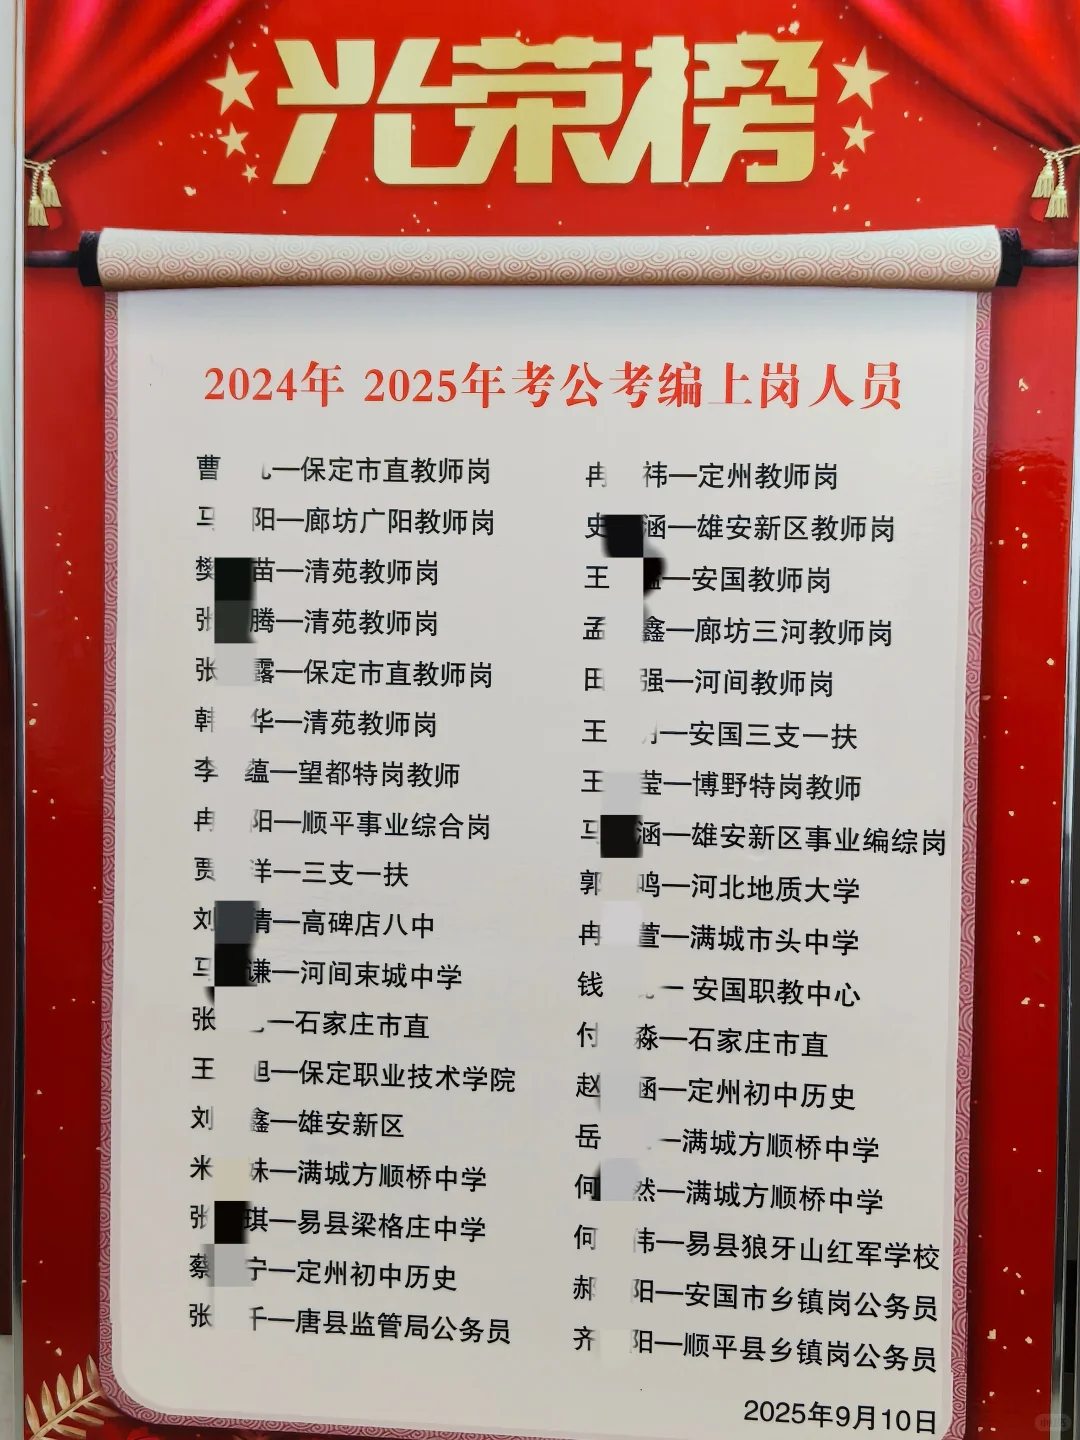 光荣榜
2024年 2025年考公考编上岗人员
曹 一保定市直教师岗
马 阳一廊坊广阳教师岗
樊 苗一清苑教师岗
张 腾一清苑教师岗
张 露一保定市直教师岗
韩 华一清苑教师岗
李 蕴一望都特岗教师
冉 阳一顺平事业综合岗
贾 洋一三支一扶
刘 倩一高碑店八中
马 谦一河间束城中学
张 一石家庄市直
王 旭一保定职业技术学院
刘 鑫一雄安新区
米 妹一满城方顺桥中学
张 琪一易县梁格庄中学
蔡 宁一定州初中历史
张 千一唐县监管局公务员
冉 祎一定州教师岗
史 涵一雄安新区教师岗
王 一安国教师岗
孟 鑫一廊坊三河教师岗
田 强一河间教师岗
王 一安国三支一扶
王 莹一博野特岗教师
马 涵一雄安新区事业编综岗
郭 鸣一河北地质大学
冉 萱一满城市头中学
钱 一 安国职教中心
付 淼一石家庄市直
赵 涵一定州初中历史
岳 一满城方顺桥中学
何 然一满城方顺桥中学
何 伟一易县狼牙山红军学校
郝 阳一安国市乡镇岗公务员
齐 阳一顺平县乡镇岗公务员
2025年9月10日